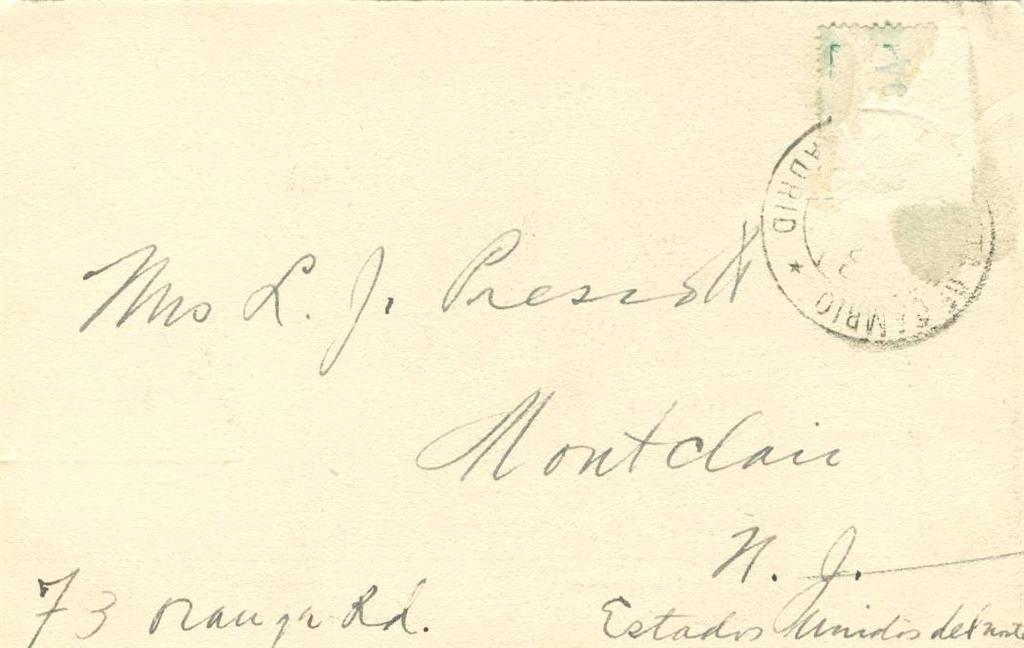 MADRID ★ CAMBIO
Mrs L. J. Prescott
Montclair
N. J.
73 Orange Rd.
Estados Unidos del norte